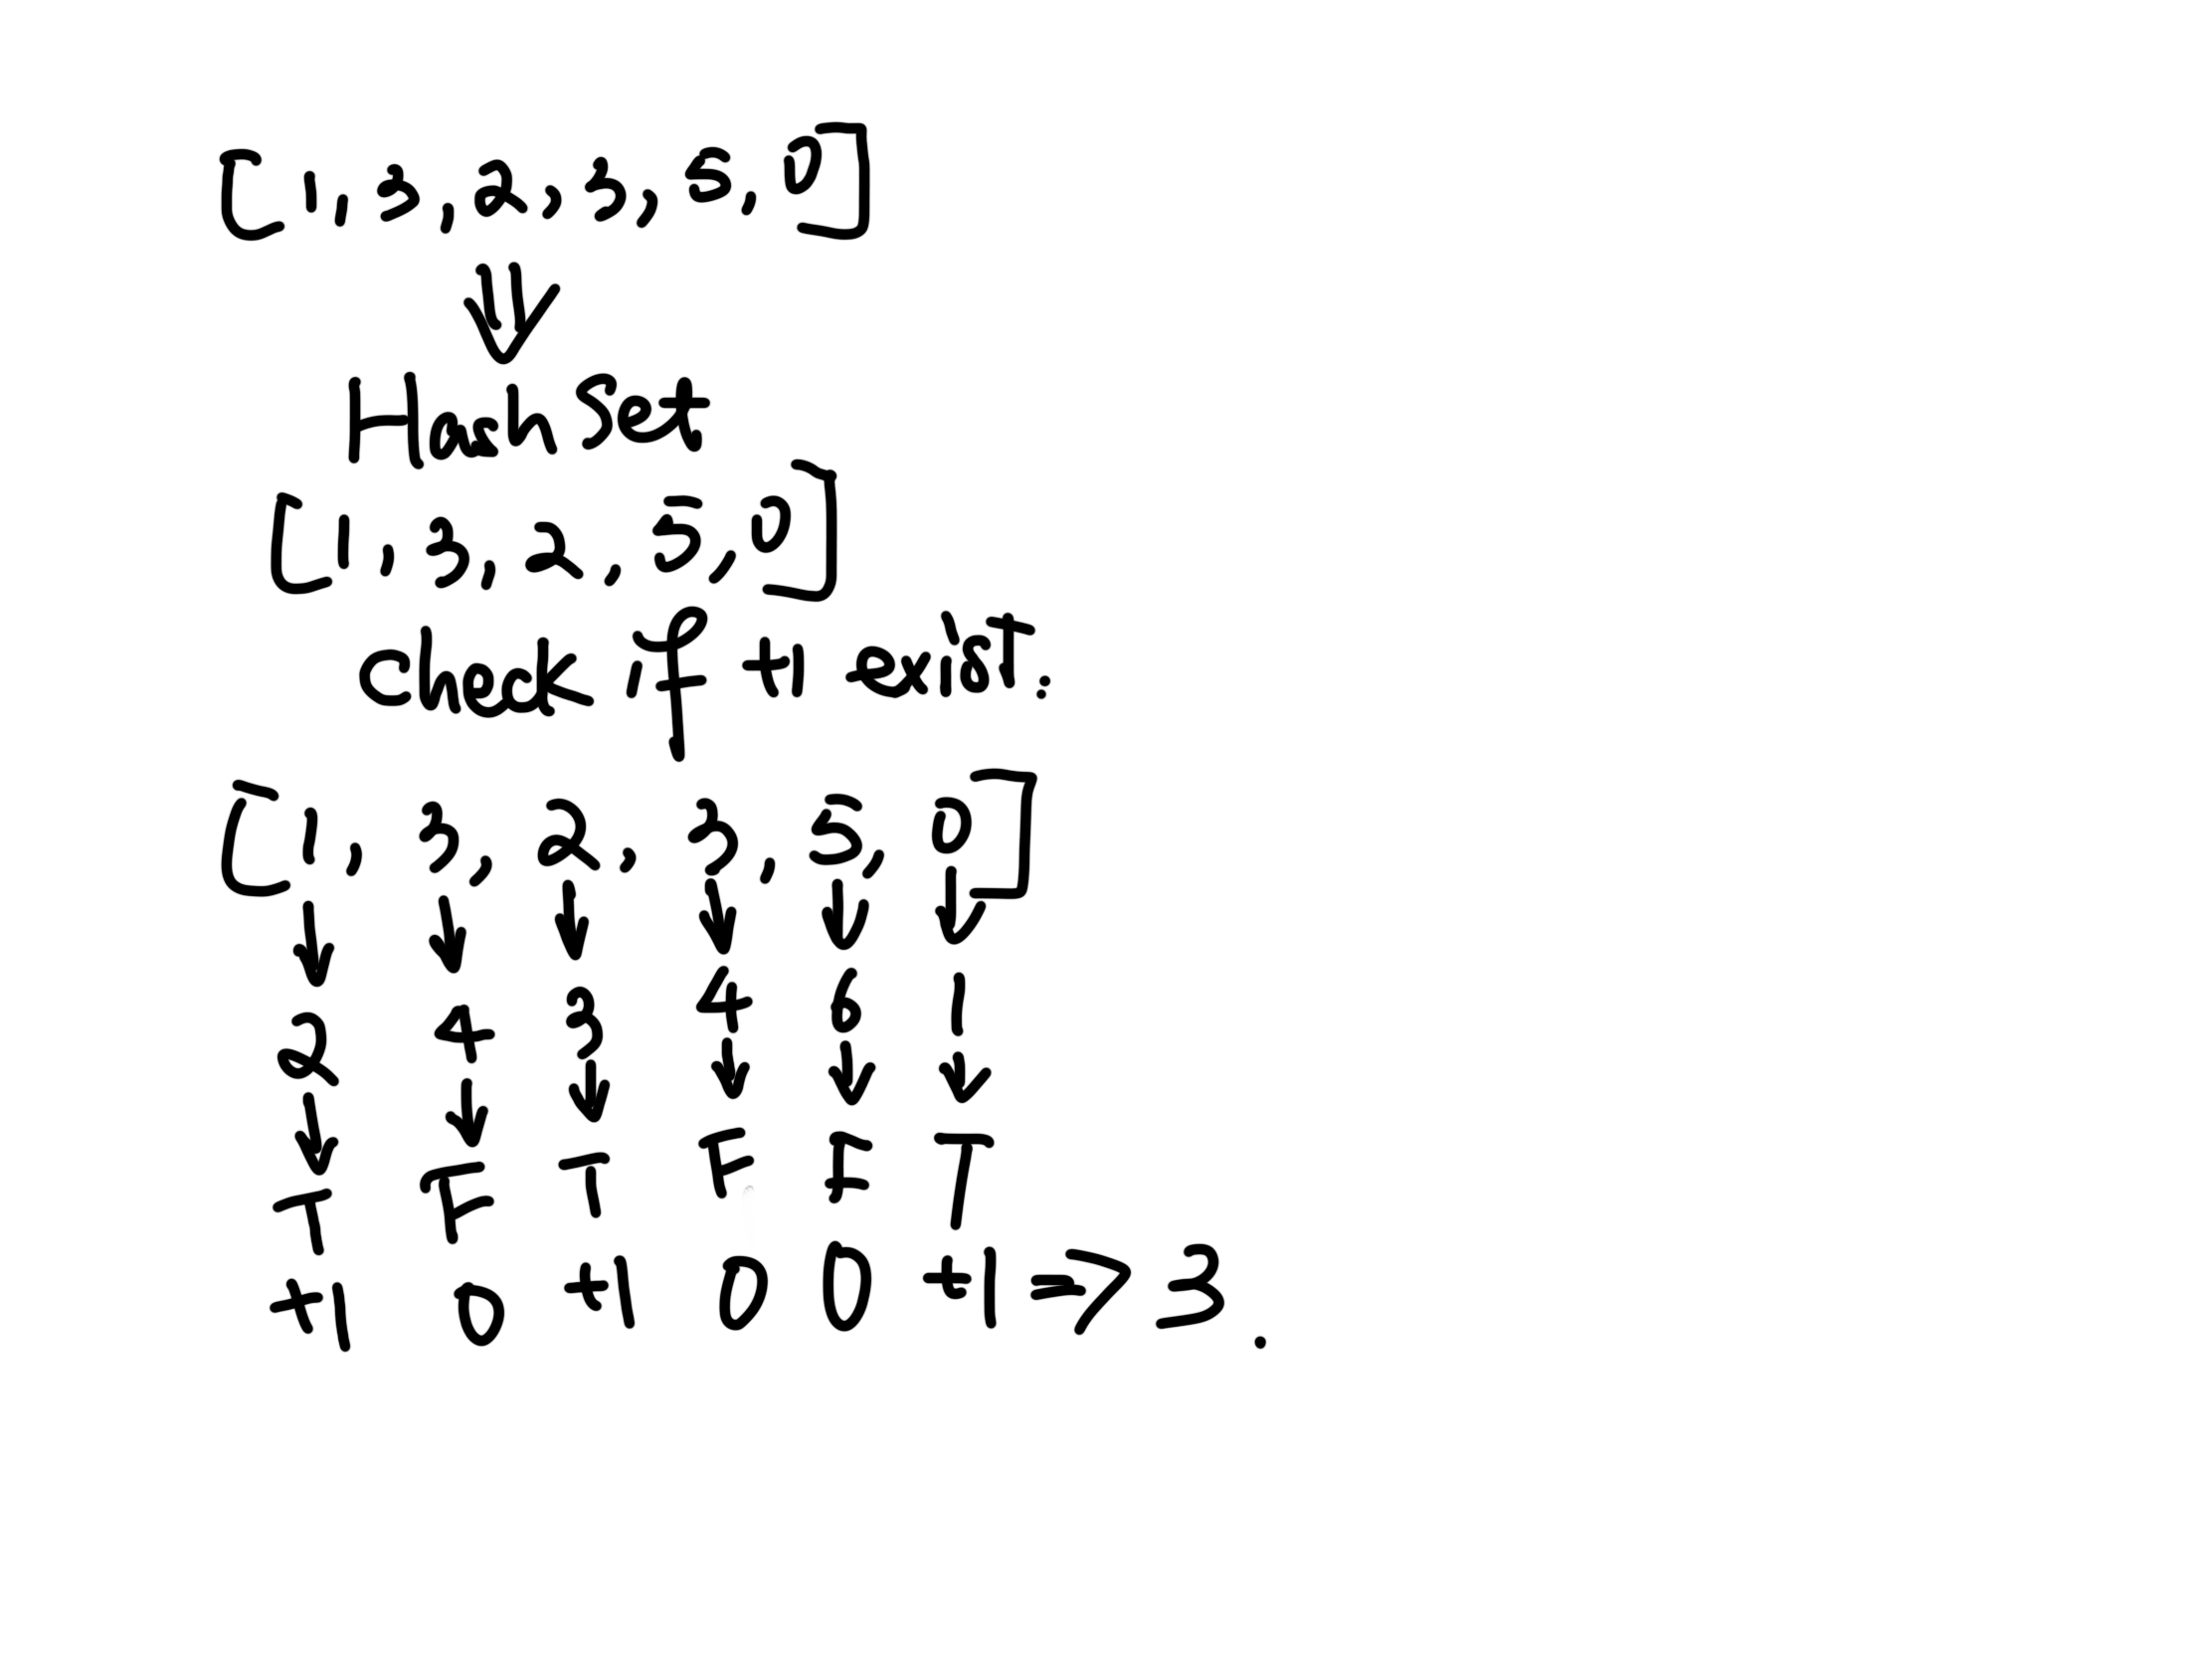 [1, 3, 2, 3, 5, 0]
⇓
Hash Set
[1, 3, 2, 5, 0]
check if +1 exist:
[1, 3, 2, 3, 5, 0]
↓ ↓ ↓ ↓ ↓ ↓
2 4 3 4 6 1
↓ ↓ ↓ ↓ ↓ ↓
T F T F F T
+1 0 +1 0 0 +1 => 3.